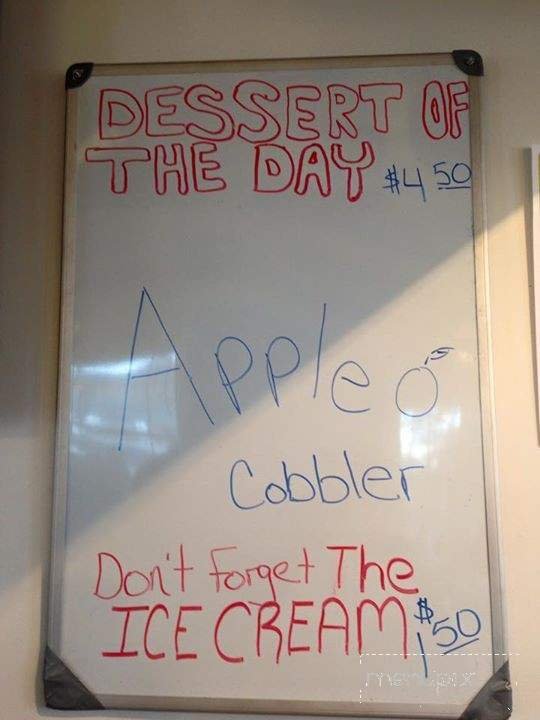 DESSERT OF
THE DAY $4 50
Apple
Cobbler
Don't Forget The
ICE CREAM $1 50
menupix